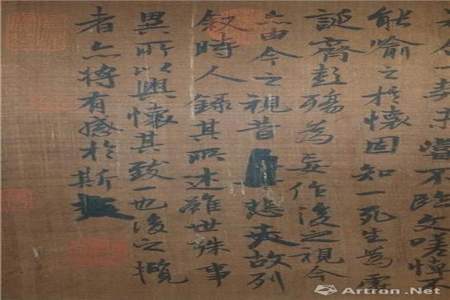 合一契未嘗不臨文嗟悼
能喻之於懷固知一死生為虛
誕齊彭殤為妄作後之視今
亦由今之視昔悲夫故列
敘時人錄其所述雖世殊事
異所以興懷其致一也後之攬
者亦將有感於斯
Artron.Net